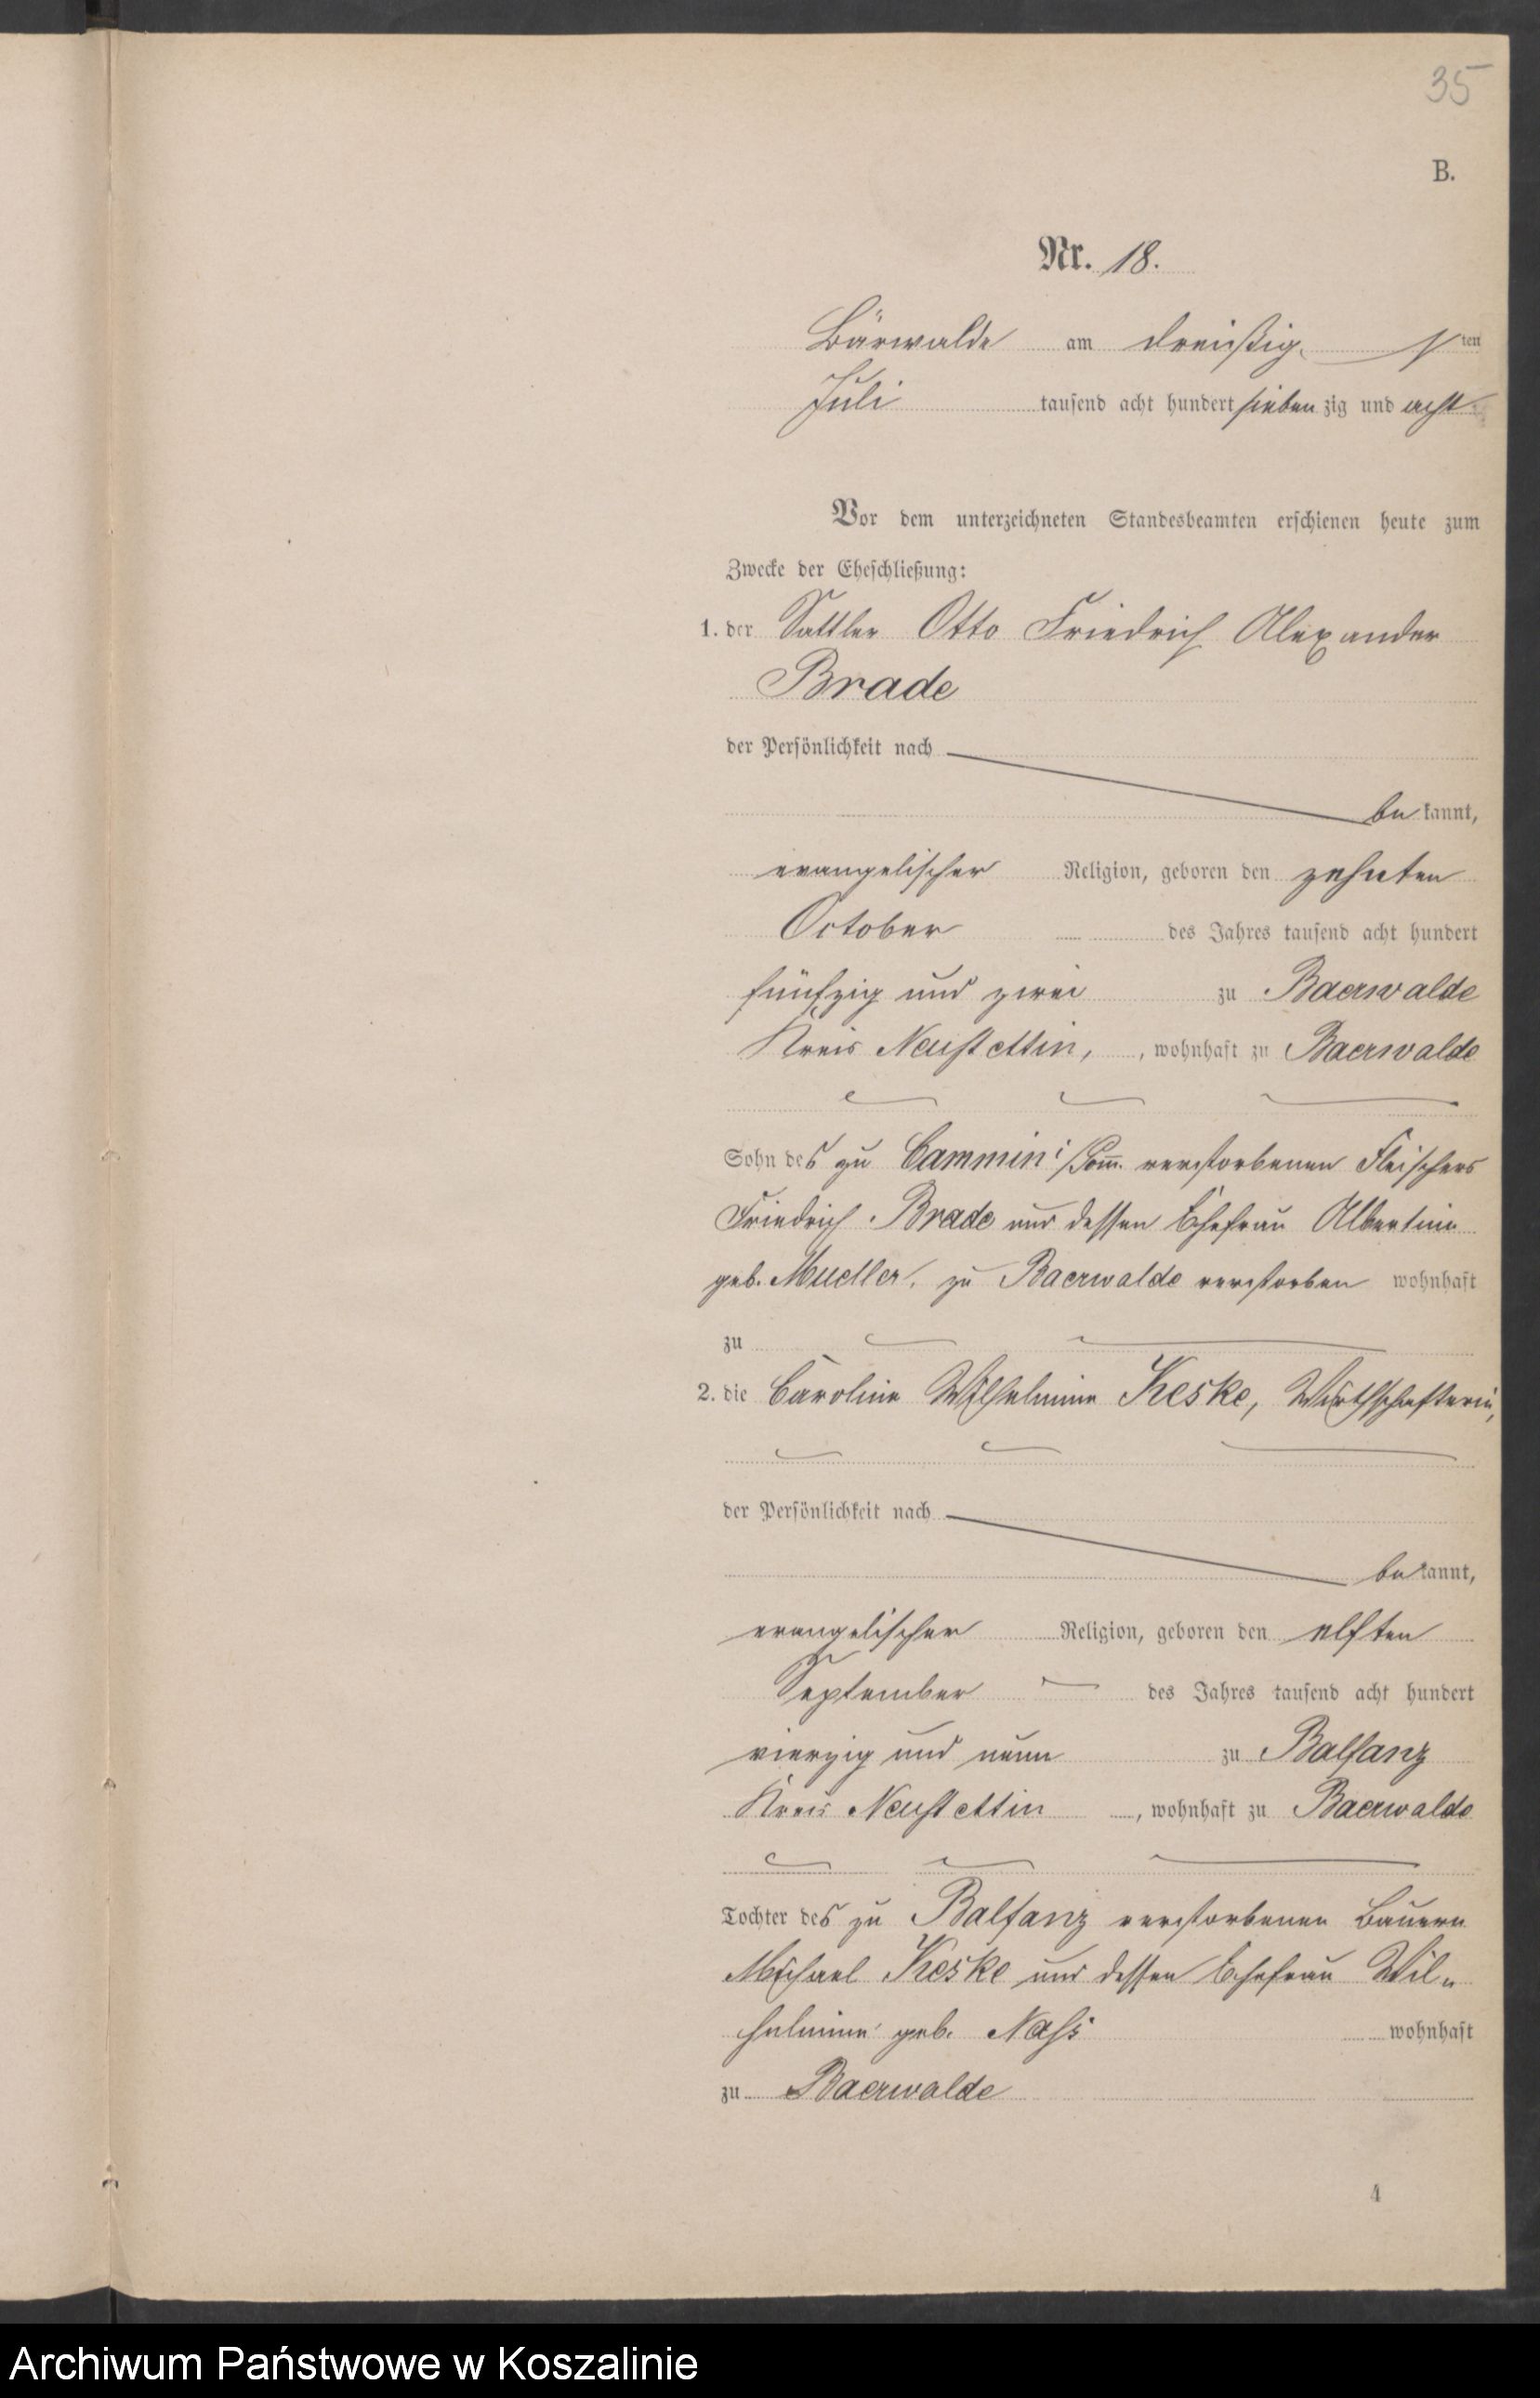 35
B.
Nr. 18.
Bärwalde am dreißig sten
Juli tausend acht hundert sieben zig und acht
Vor dem unterzeichneten Standesbeamten erschienen heute zum
Zwecke der Eheschließung:
1. der Sattler Otto Friedrich Alexander
Brade
der Persönlichkeit nach
be kannt,
evangelischer Religion, geboren den zehnten
October des Jahres tausend acht hundert
fünfzig und zwei zu Baerwalde
Kreis Neustettin, , wohnhaft zu Baerwalde
Sohn des zu Cammin i/Pom. verstorbenen Fleischers
Friedrich Brade und dessen Ehefrau Albertine
geb. Mueller, zu Baerwalde verstorben wohnhaft
zu
2. die Caroline Wilhelmine Keske, Wirthschafterin,
der Persönlichkeit nach
be kannt,
evangelischer Religion, geboren den elften
September des Jahres tausend acht hundert
vierzig und neun zu Balfanz
Kreis Neustettin , wohnhaft zu Baerwalde
Tochter des zu Balfanz verstorbenen Bauern
Michael Keske und dessen Ehefrau Wil-
helmine geb. Nass wohnhaft
zu Baerwalde
4
Archiwum Państwowe w Koszalinie